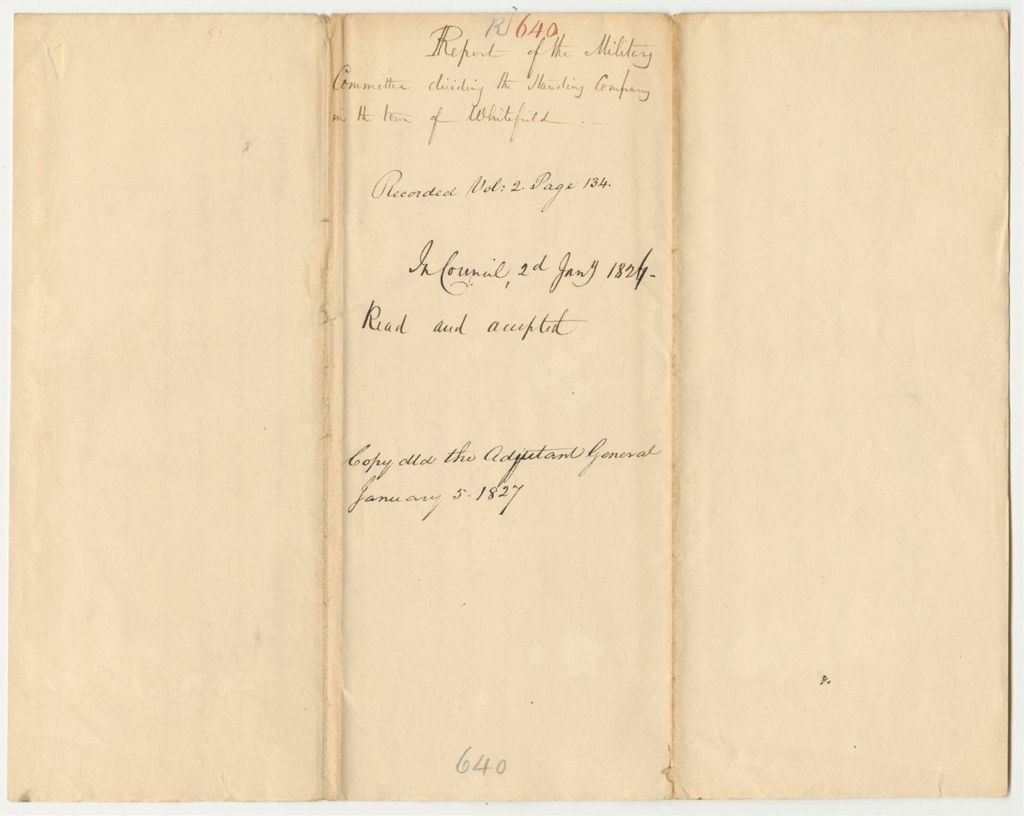 R 640
Report of the Military
Committee dividing the Standing Company
in the town of Whitefield.
Recorded Vol: 2. Page 134.
In Council, 2d Jany
Read and accepted
Copy dld the Adjutant General
January 5. 1827
640